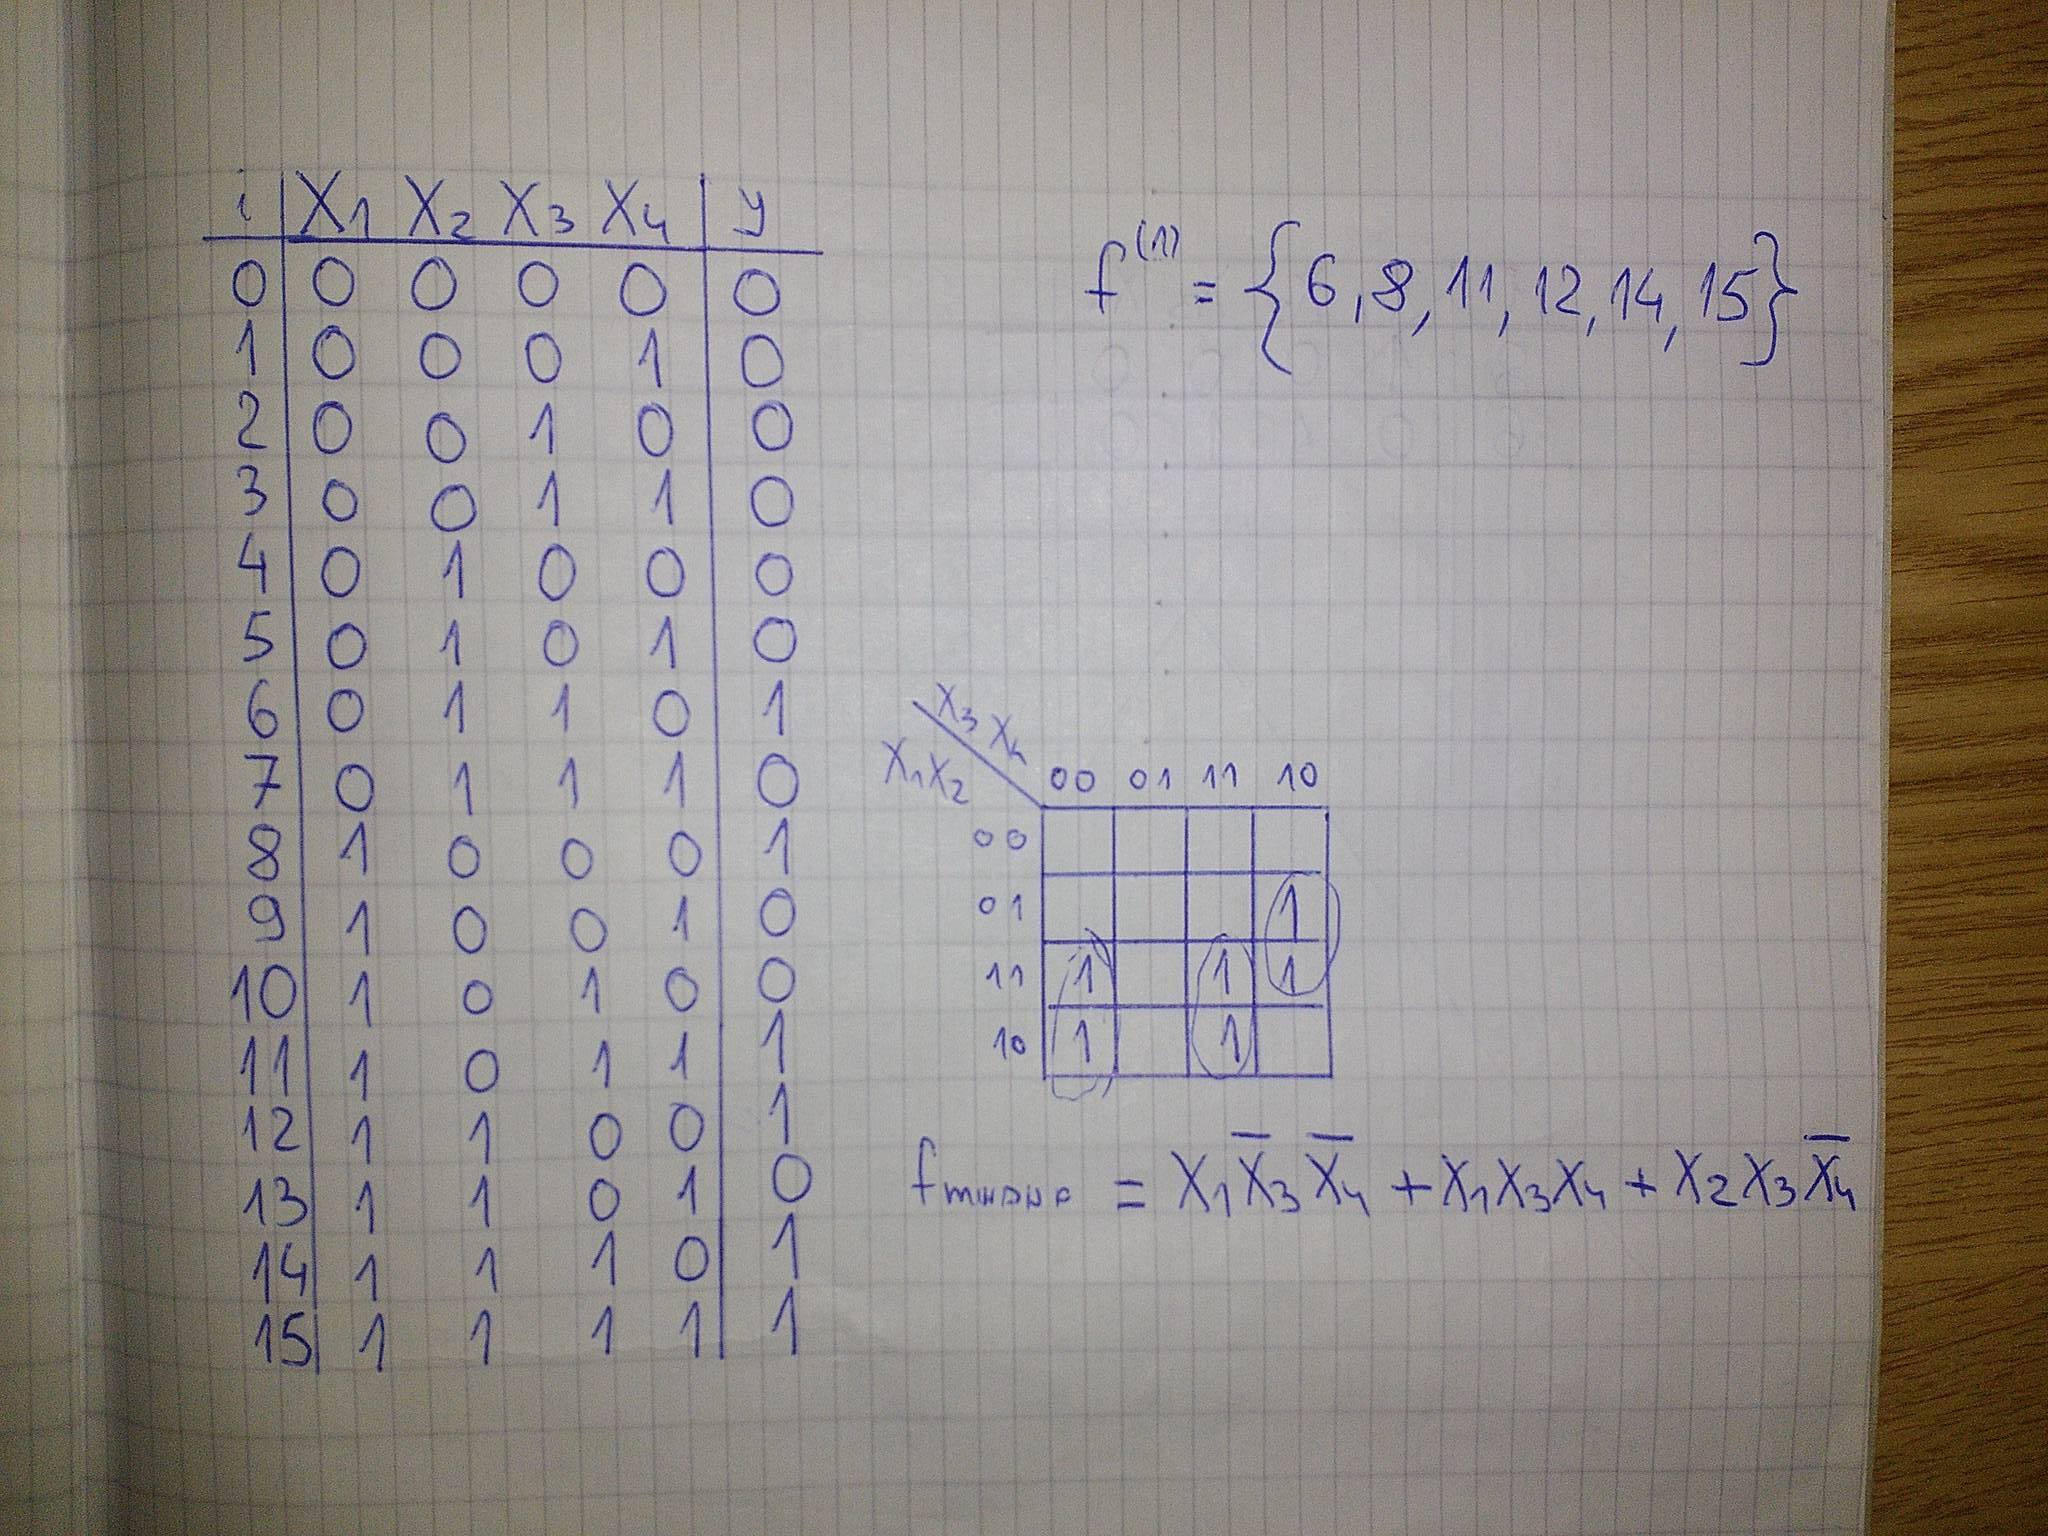 i X1 X2 X3 X4 y
0 0 0 0 0 0
1 0 0 0 1 0
2 0 0 1 0 0
3 0 0 1 1 0
4 0 1 0 0 0
5 0 1 0 1 0
6 0 1 1 0 1
7 0 1 1 1 0
8 1 0 0 0 1
9 1 0 0 1 0
10 1 0 1 0 0
11 1 0 1 1 1
12 1 1 0 0 1
13 1 1 0 1 0
14 1 1 1 0 1
15 1 1 1 1 1
f⁽¹⁾ = {6, 8, 11, 12, 14, 15}
X3 X4
X1X2
00 01 11 10
00
01 1
11 1 1 1
10 1 1
= X1X̅3X̅4 + X1X3X4 + X2X3X̅4